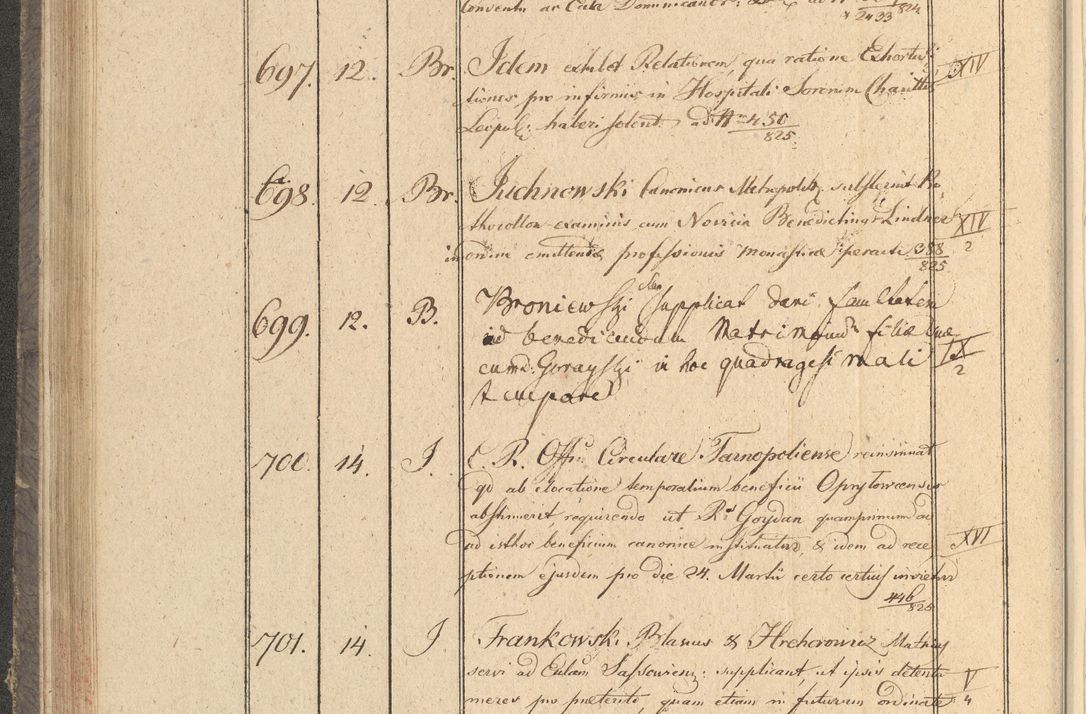 Conventu ac Cura Dominicanor: ad N 824/2433
697. 12. Br. Idem exhibet Relationem, qua ratione Exhorta- XIV
tiones pro infirmis in Hospitali Sororum Charitt:
Leopol: haberi solent. ad N 450/825
698. 12. Br. Juchnowski Canonicus Metropolit. substernit Pro-
thocollon examinis cum Novicia Benedictinar Lindner XIV/2
in ordine emittendae professionis monasticae peracti 388/825
699. 12. B. Broniewski supplicat dari facultatem
ad benedicendum Matrimonium filiae suae
cum D. Gorayski in hoc quadragesimali IX/2
tempore
700. 14. J. C. R. Offm. Circulare Tarnopoliense reinsinuat
qd ab elocatione temporalium beneficii Oprylowcensis
abstinuerit, requirendo ut Rd Goydan quamprimum
ad isthoc beneficium canonice instituatur, & idem ad rece- XVI
ptionem ejusdem pro die 24. Martii certo certius invietur
446/825
701. 14. J Frankowski Blasius & Hrehorowicz Mathias
servi ad Eccl̃am Sassowien: supplicant, ut ipsis detentu V/4
meres pro praeterito, quam etiam in futurum ordinate